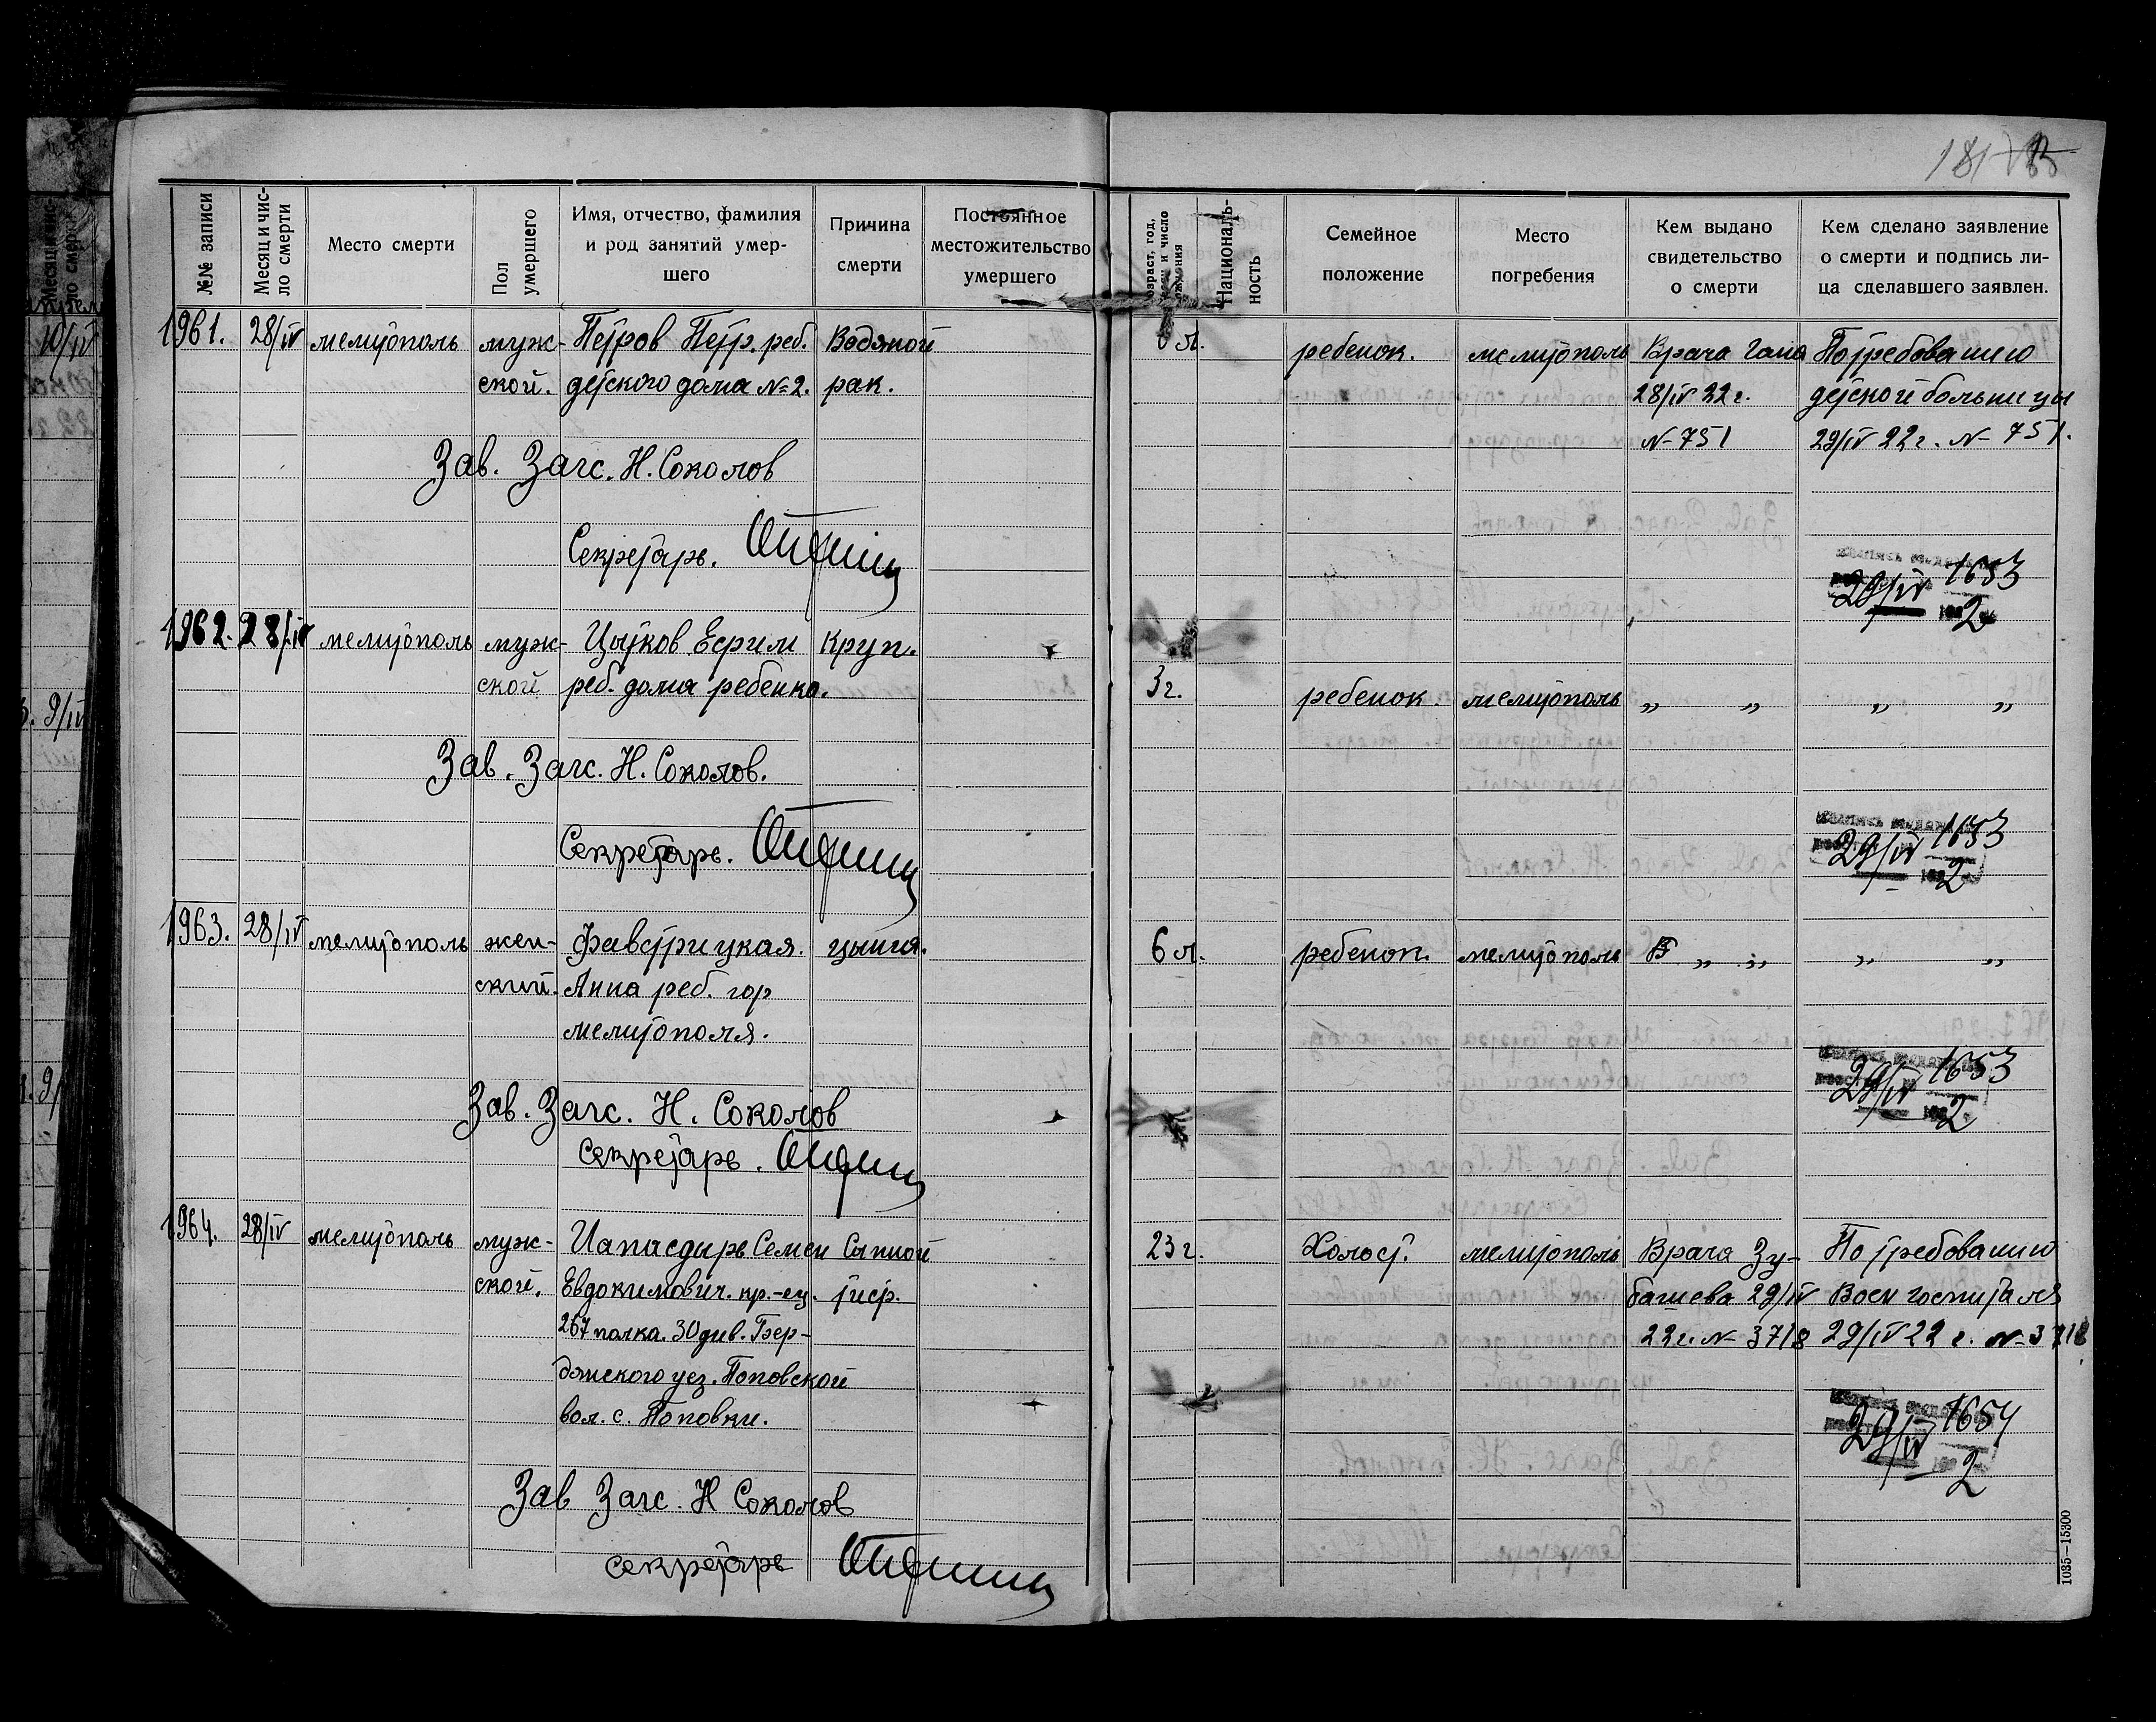 181
№№ записи
Месяц и чис-
ло смерти
Место смерти
Пол
умершего
Имя, отчество, фамилия
и род занятий умер-
шего
Причина
смерти
Постоянное
местожительство
умершего
Националь-
ность
Семейное
положение
Место
погребения
Кем выдано
свидетельство
о смерти
Кем сделано заявление
о смерти и подпись ли-
ца сделавшего заявлен.
1961. 28/IV мелитополь муж- Петров Петр. реб. Водяной л. ребенок. мелитополь Врача Гана По требованию
ской. детского дома №2. рак. 28/IV 22 г. детской больницы
N 751 29/IV 22 г. N 751.
Зав. Загс. Н. Соколов
Секретарь.
29/IV 1653
2
1962. 28/IV мелитополь муж- Цытков Ефрим Круп.
ской реб. дома ребенка. 3 г. ребенок. мелитополь „ „ „ „
Зав. Загс. Н. Соколов.
Секретарь.
29/IV 1653
2
1963. 28/IV мелитополь жен- Фавстрицкая. цынга. 6 л. ребенок. мелитополь „ „ „ „
ский. Анна реб. гор
мелитополя.
Зав. Загс. Н. Соколов
Секретарь.
29/IV 1653
2
1964. 28/IV мелитополь муж- Семен Сыпной 23 г. Холост. мелитополь Врача Зу- По требованию
ской. Евдокимович. кр.-ец. тиф. башева 29/IV Воен госпиталя
267 полка. 30 див. Бер- 22 г. N 3718 29/IV 22 г. N 3718
дянского уез. Поповской
вол. с. Поповки.
29/IV 1654
2
Зав Загс. Н Соколов
секретарь
1035—15300